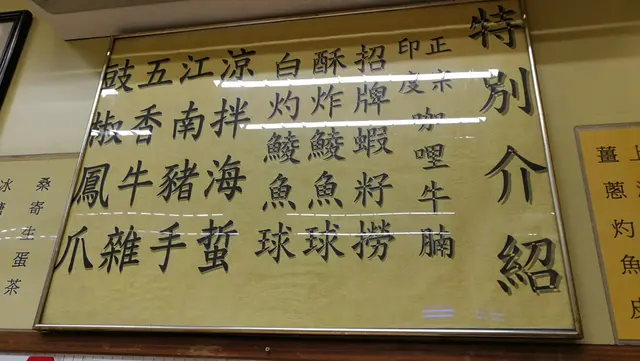 特別介紹
正宗
印度咖哩牛腩
招牌蝦籽撈
酥炸鯪魚球
白灼鯪魚球
涼拌海蜇
江南豬手
五香牛雜
豉椒鳳爪
桑寄生蛋茶
冰
薑蔥灼魚皮
上